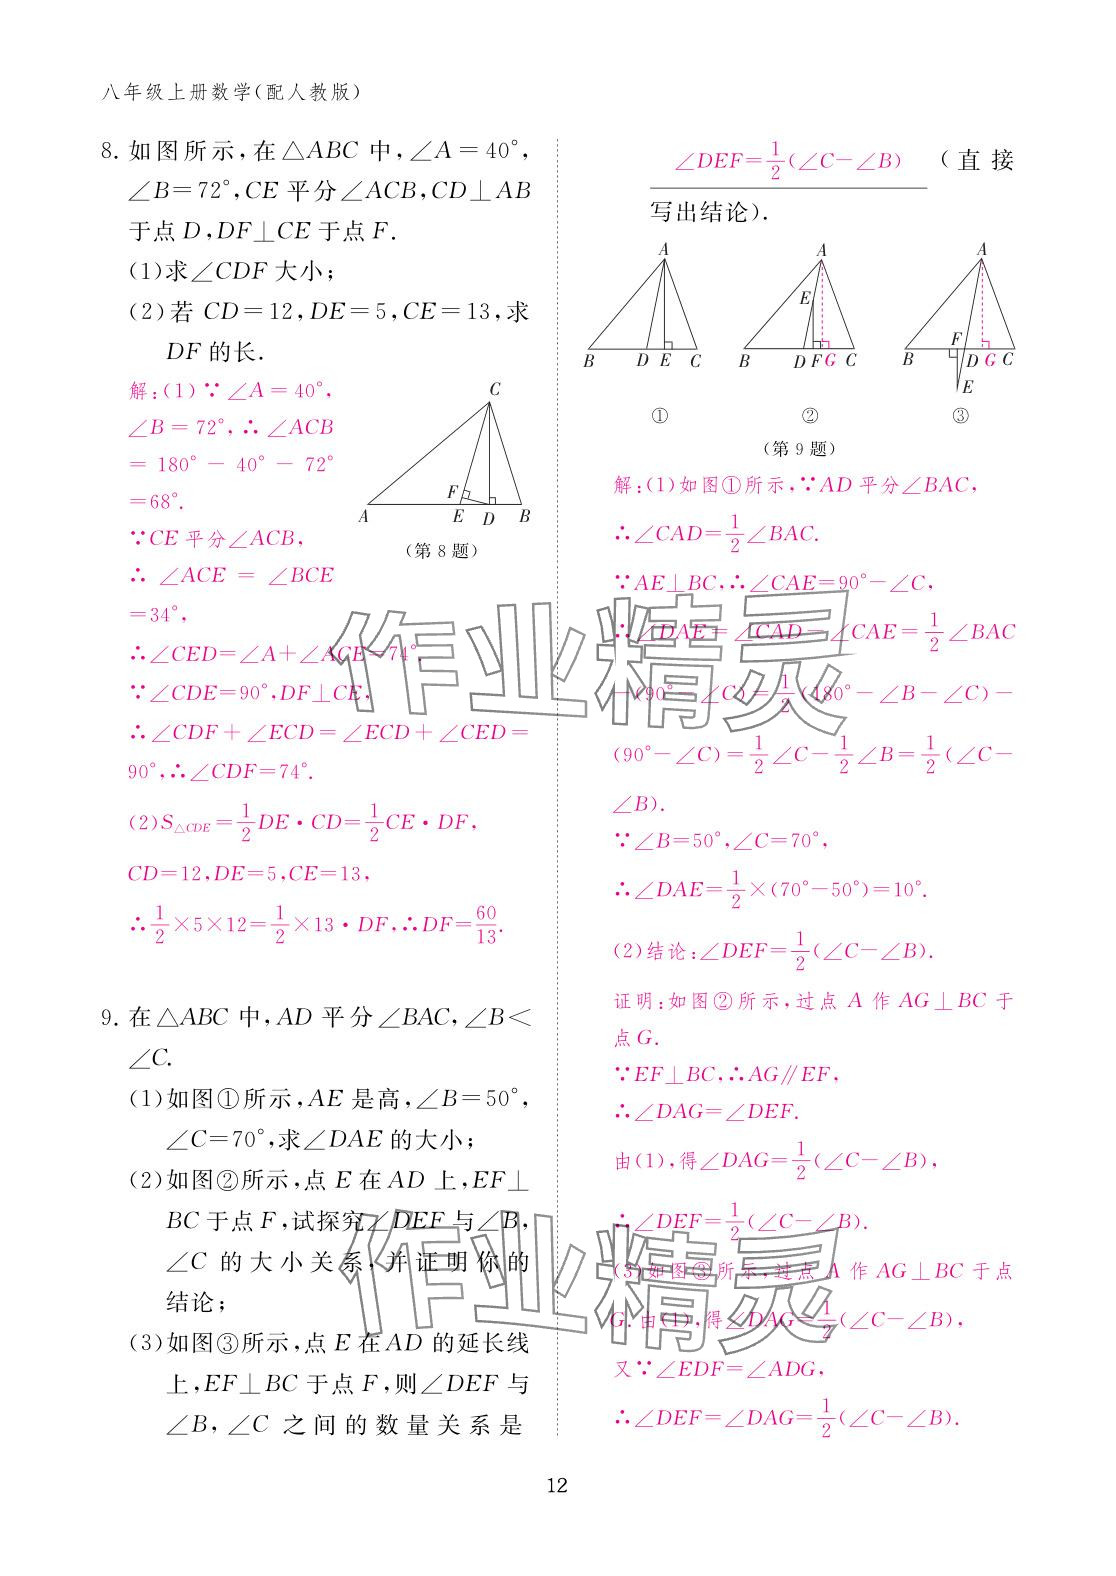 八年级上册数学(配人教版)
8. 如图所示,在△ABC 中,∠A=40°,
∠B=72°,CE 平分∠ACB,CD⊥AB
于点 D,DF⊥CE 于点 F.
(1)求∠CDF 大小;
(2)若 CD=12,DE=5,CE=13,求
DF 的长.
解:(1)∵∠A=40°,
∠B=72°,∴∠ACB
=180°-40°-72°
=68°.
∵CE 平分∠ACB,
∴∠ACE=∠BCE
=34°,
∴∠CED=∠A+∠ACE=74°.
∵∠CDE=90°,DF⊥CE,
∴∠CDF+∠ECD=∠ECD+∠CED=
90°,∴∠CDF=74°.
(2)S△CDE=1/2DE·CD=1/2CE·DF,
CD=12,DE=5,CE=13,
∴1/2×5×12=1/2×13·DF,∴DF=60/13.
C
F
A E D B
(第 8 题)
9. 在△ABC 中,AD 平分∠BAC,∠B<
∠C.
(1)如图①所示,AE 是高,∠B=50°,
∠C=70°,求∠DAE 的大小;
(2)如图②所示,点 E 在 AD 上,EF⊥
BC 于点 F,试探究∠DEF 与∠B,
∠C 的大小关系,并证明你的
结论;
(3)如图③所示,点 E 在 AD 的延长线
上,EF⊥BC 于点 F,则∠DEF 与
∠B,∠C 之间的数量关系是
∠DEF=1/2(∠C-∠B) (直接
写出结论).
A
B D E C
①
A
E
B D F G C
②
A
F
B D G C
E
③
(第 9 题)
解:(1)如图①所示,∵AD 平分∠BAC,
∴∠CAD=1/2∠BAC.
∵AE⊥BC,∴∠CAE=90°-∠C,
∴∠DAE=∠CAD-∠CAE=1/2∠BAC
-(90°-∠C)=1/2(180°-∠B-∠C)-
(90°-∠C)=1/2∠C-1/2∠B=1/2(∠C-
∠B).
∵∠B=50°,∠C=70°,
∴∠DAE=1/2×(70°-50°)=10°.
(2)结论:∠DEF=1/2(∠C-∠B).
证明:如图②所示,过点 A 作 AG⊥BC 于
点 G.
∵EF⊥BC,∴AG∥EF,
∴∠DAG=∠DEF.
由(1),得∠DAG=1/2(∠C-∠B),
∴∠DEF=1/2(∠C-∠B).
(3)如图③所示,过点 A 作 AG⊥BC 于点
G.由(1),得∠DAG=1/2(∠C-∠B),
又∵∠EDF=∠ADG,
∴∠DEF=∠DAG=1/2(∠C-∠B).
作业精灵
作业精灵
12